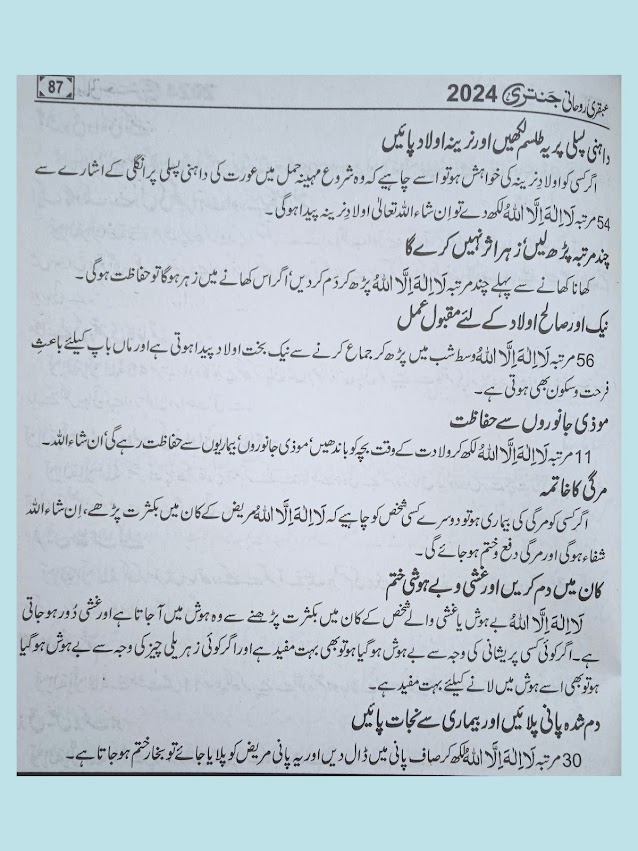 عبقری روحانی جنتری 2024
87
داہنی پسلی پر یہ طلسم لکھیں اور نرینہ اولاد پائیں
اگر کسی کو اولادِ نرینہ کی خواہش ہو تو اسے چاہیے کہ وہ شروع مہینہ حمل میں عورت کی داہنی پسلی پر انگلی کے اشارے سے
54 مرتبہ لَا اِلٰہَ اِلَّا اللہُ لکھ دے تو اِن شاء اللہ تعالیٰ اولادِ نرینہ پیدا ہوگی۔
چند مرتبہ پڑھ لیں‘ زہر اثر نہیں کرے گا
کھانا کھانے سے پہلے چند مرتبہ لَا اِلٰہَ اِلَّا اللہُ پڑھ کر دَم کر دیں‘ اگر اس کھانے میں زہر ہوگا تو حفاظت ہوگی۔
نیک اور صالح اولاد کے لئے مقبول عمل
56 مرتبہ لَا اِلٰہَ اِلَّا اللہُ وسط شب میں پڑھ کر جماع کرنے سے نیک بخت اولاد پیدا ہوتی ہے اور ماں باپ کیلئے باعثِ
فرحت و سکون بھی ہوتی ہے۔
موذی جانوروں سے حفاظت
11 مرتبہ لَا اِلٰہَ اِلَّا اللہُ لکھ کر ولادت کے وقت بچہ کو باندھیں‘ موذی جانوروں‘ بیماریوں سے حفاظت رہے گی‘ ان شاء اللہ۔
مرگی کا خاتمہ
اگر کسی کو مرگی کی بیماری ہو تو دوسرے کسی شخص کو چاہیے کہ لَا اِلٰہَ اِلَّا اللہُ مریض کے کان میں بکثرت پڑھے، اِن شاء اللہ
شفاء ہوگی اور مرگی دفع و ختم ہو جائے گی۔
کان میں دم کریں اور غشی و بے ہوشی ختم
لَا اِلٰہَ اِلَّا اللہُ بے ہوش یا غشی والے شخص کے کان میں بکثرت پڑھنے سے وہ ہوش میں آ جاتا ہے اور غشی دُور ہو جاتی
ہے۔ اگر کوئی کسی پریشانی کی وجہ سے بے ہوش ہو گیا ہو تو بھی بہت مفید ہے اور اگر کوئی زہریلی چیز کی وجہ سے بے ہوش ہو گیا
ہو تو بھی اسے ہوش میں لانے کیلئے بہت مفید ہے۔
دم شدہ پانی پلائیں اور بیماری سے نجات پائیں
30 مرتبہ لَا اِلٰہَ اِلَّا اللہُ لکھ کر صاف پانی میں ڈال دیں اور یہ پانی مریض کو پلایا جائے تو بخار ختم ہو جاتا ہے۔